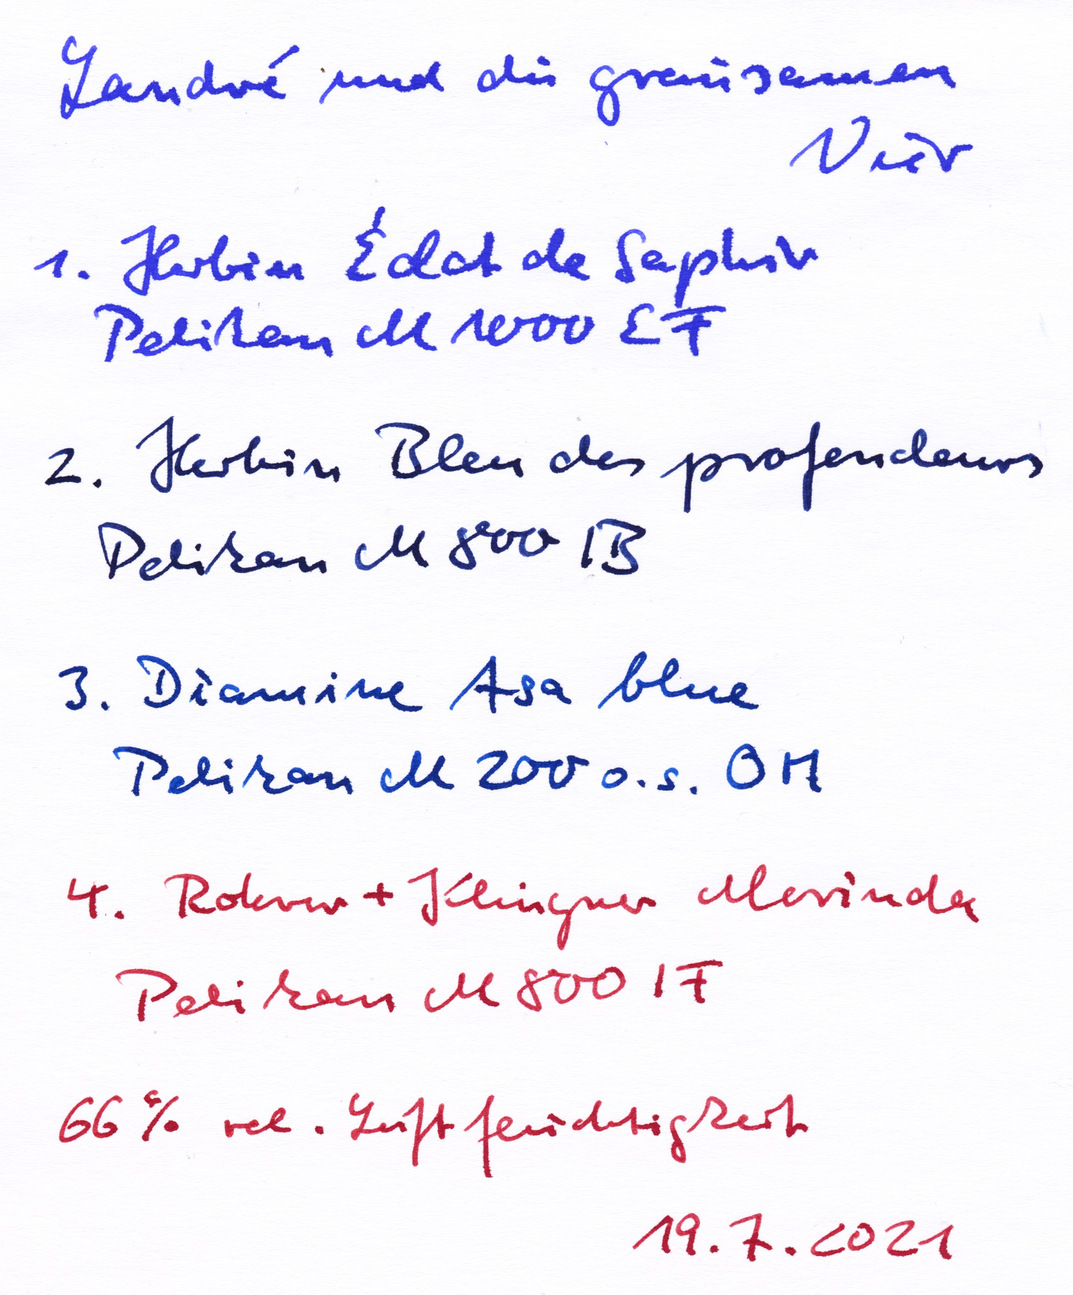 Landré und die grausamen
Vier
1. Herbin Éclat de Saphir
Pelikan M 1000 EF
2. Herbin Bleu des profondeurs
Pelikan M 800 IB
3. Diamine Asa blue
Pelikan M 200 o.s. OM
4. Rohrer + Klingner Morinda
Pelikan M 800 IF
66 % rel. Luftfeuchtigkeit
19.7.2021